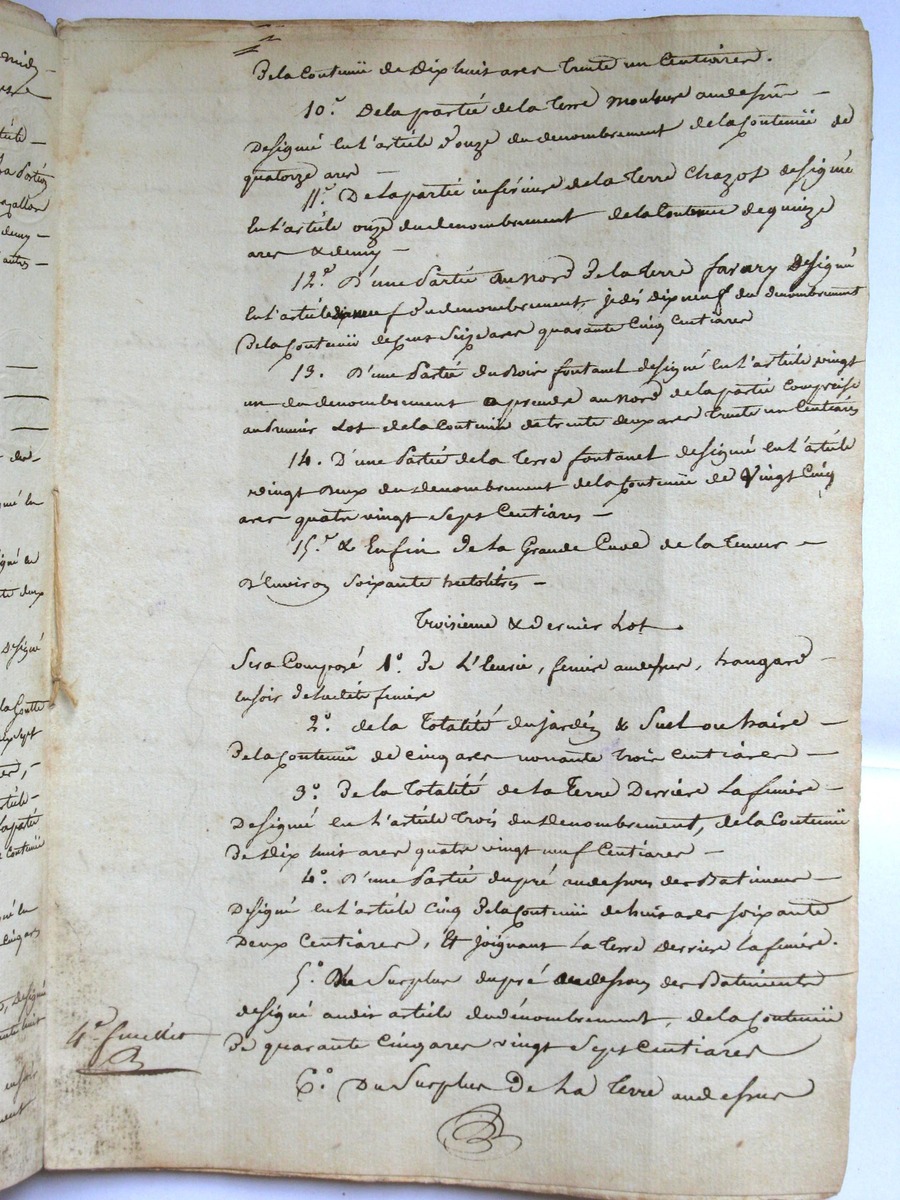 De la Contenüe de Dix huit ares Trente un Centiares.
10.° De la partie de la Terre Monture au dessus —
Designé en L'article d'onze du denombrement de la Contenüe de
quatorze ares —
11.° De la partie inférieure de la Terre Chazot designé
En L'article onze du denombrement de la Contenue de quinze
ares & demy —
12.° D'une Partie au Nord De la terre favary Designé
En L'article dix neuf du denombrement, je dis dix neuf du denombrement
De la Contenüe de Seize ares quarante Cinq Centiares
13. D'une Partie du Boix fontanel designé en L'article vingt
un du denombrement a prendre au Nord de la partie Comprise
au Premier Lot de la Contenüe de trente deux ares Trente un Centiares
14. D'une Partie de la Terre fontanel designé en L'article
vingt Deux du denombrement de la Contenüe de Vingt Cinq
ares quatre vingt Sept Centiares —
15.° & Enfin De la Grande Cuve de la Teneur —
D'Environ Soixante hectolitres —
Troisieme & dernier Lot
Sera Composé 1.° de L'Ecurie, feniere au dessus, hangard —
en soir de ladite feniere
2.° de la Totalité du jardin & Suel ou haire —
De la Contenüe de Cinq ares nonante Trois Centiares —
3.° De la Totalité de la Terre Derriere La feniere —
Designé en L'article Trois du denombrement, de la Contenüe
De Dix huit ares quatre vingt neuf Centiares —
4.° D'une Partie du pré au dessous des Batiments —
Designé en L'article Cinq de la Contenüe de huit ares soixante
Deux Centiares, Et joignant La Terre derriere La feniere.
5.° Du Surplus du pré au dessous des Batiments
designé audit article du denombrement, de la Contenüe
De quarante Cinq ares vingt Sept Centiares
6.° Du Surplus De La Terre au dessus
4.e feuillet